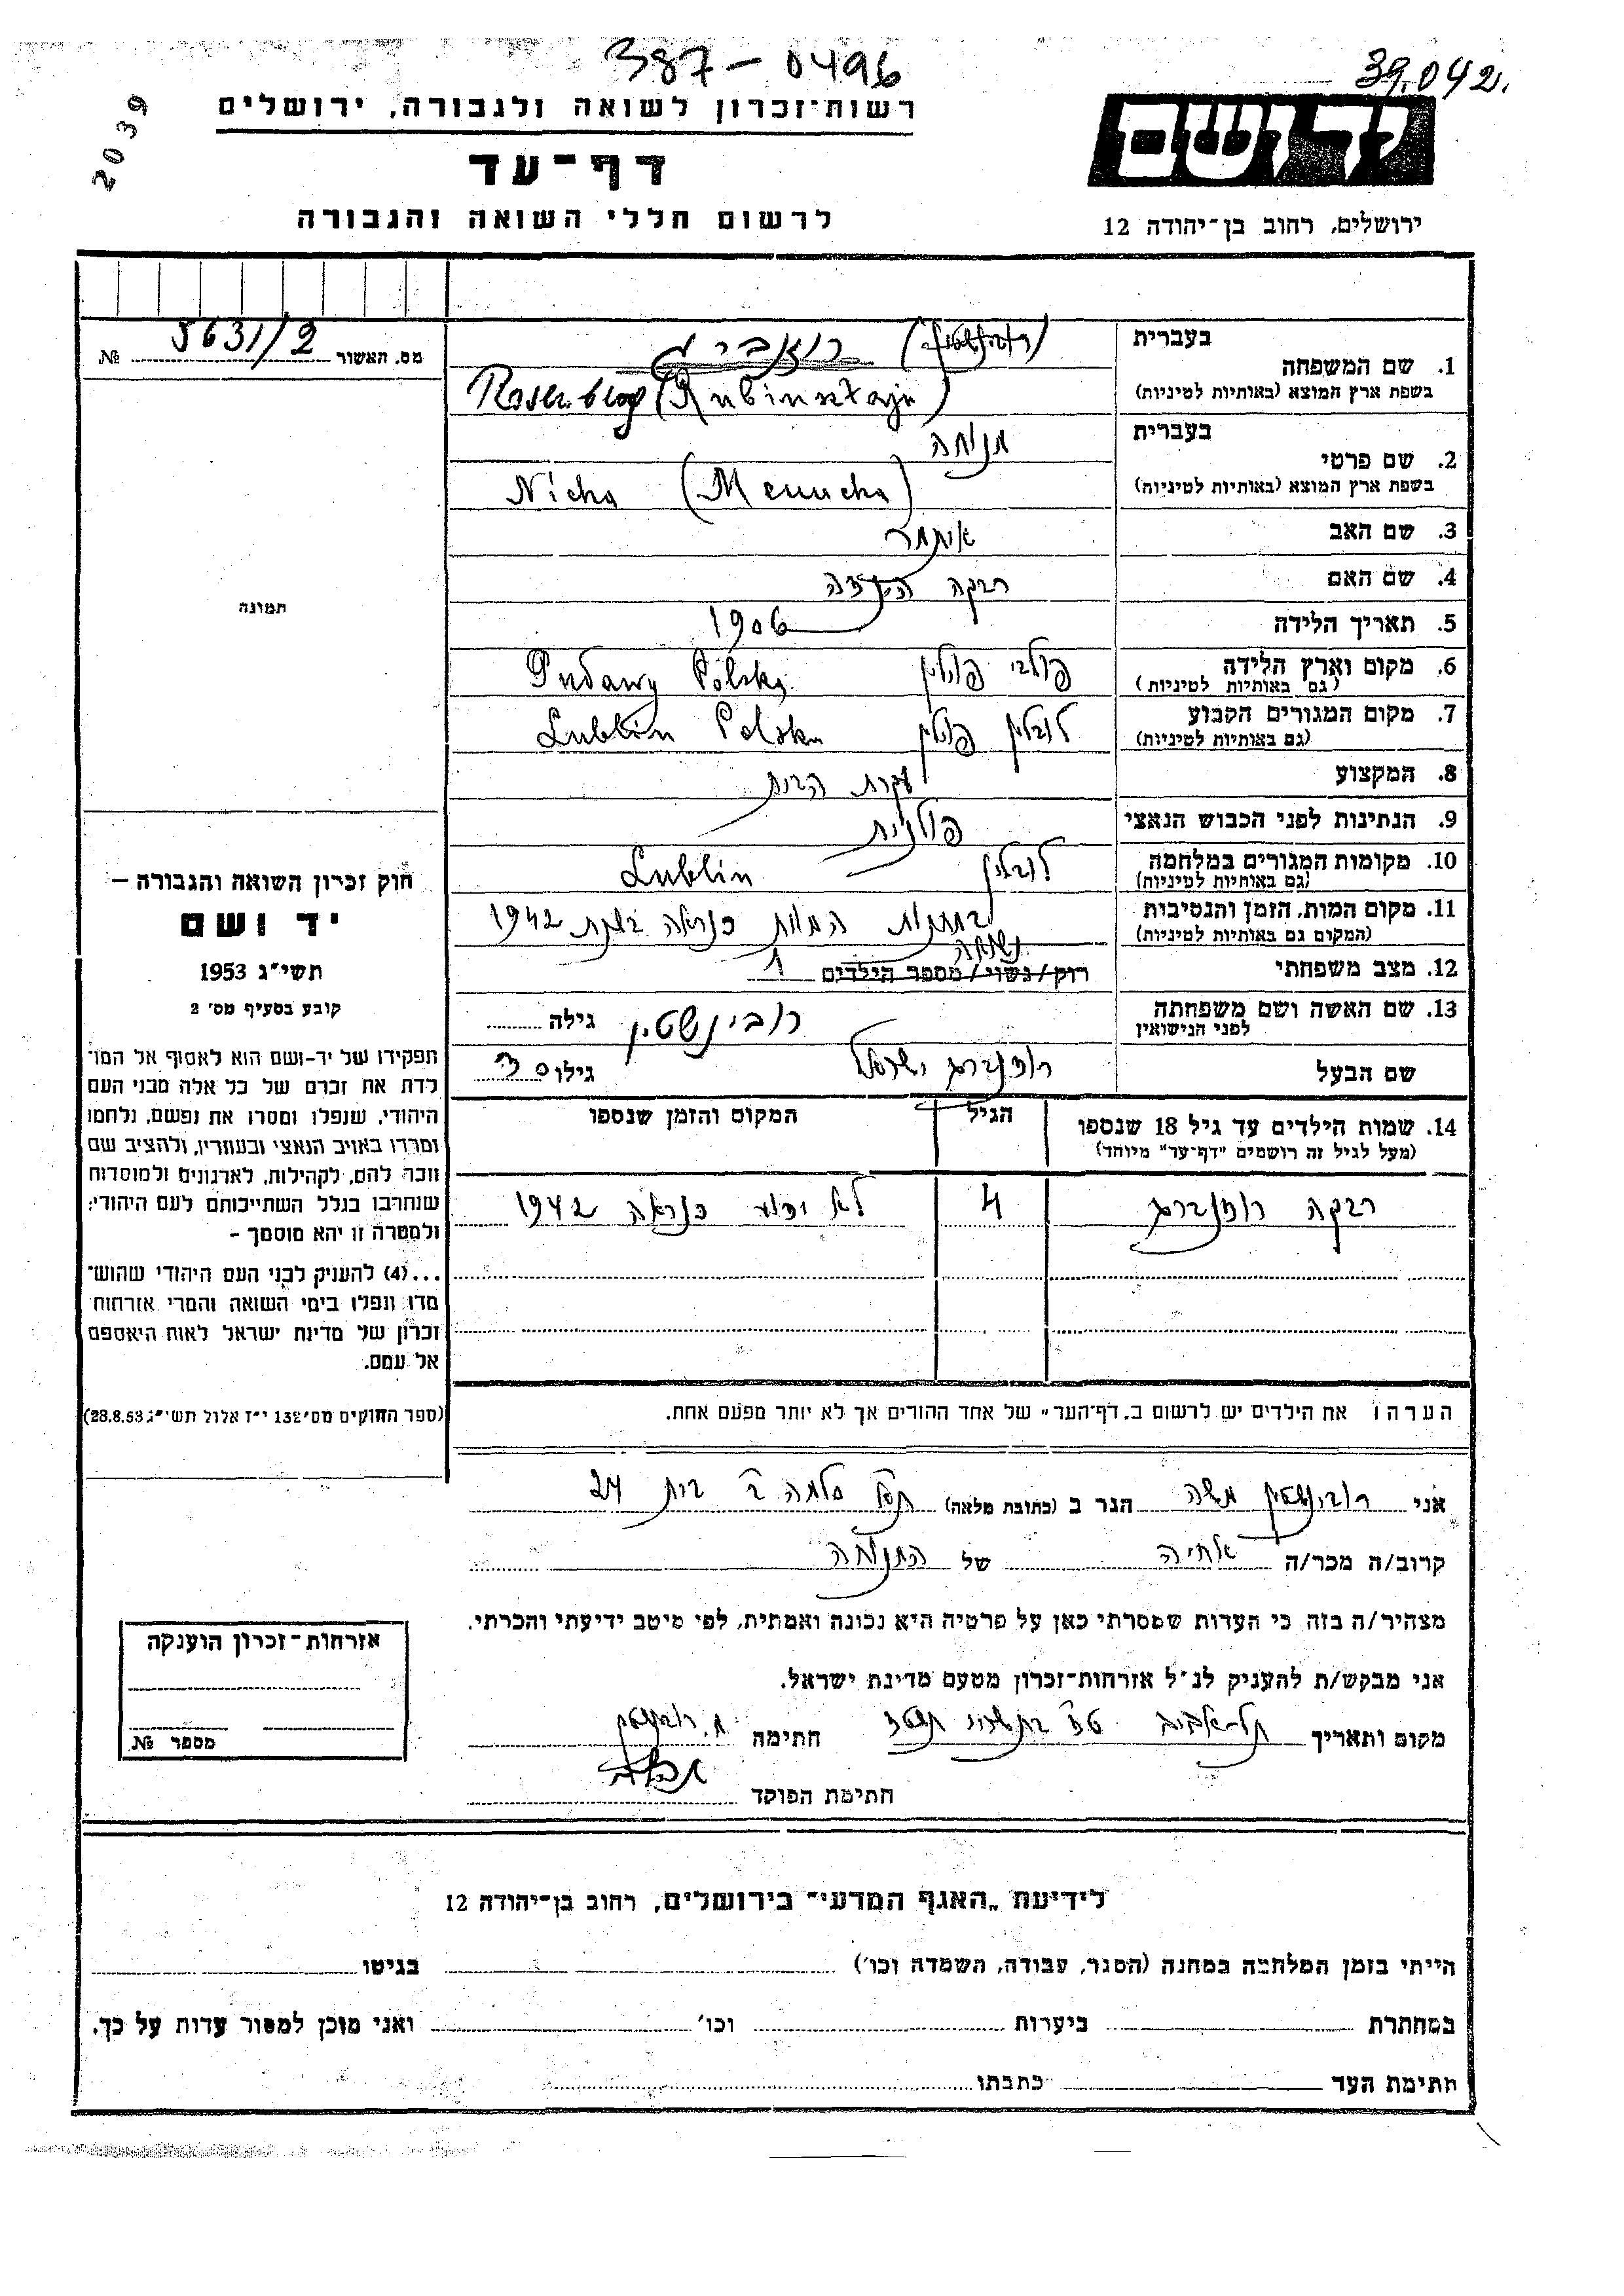 387-0496
39.042.
2039
רשות־זכרון לשואה ולגבורה, ירושלים
דף־עד
לרשום חללי השואה והגבורה
יד ושם
ירושלים, רחוב בן־יהודה 12
מס. האשור 5631/2 №
תמונה
חוק זכרון השואה והגבורה –
יד ושם
תשי״ג 1953
קובע בסעיף מס׳ 2
תפקידו של יד-ושם הוא לאסוף אל המו־
לדת את זכרם של כל אלה מבני העם
היהודי, שנפלו ומסרו את נפשם, נלחמו
ומרדו באויב הנאצי ובעוזריו, ולהציב שם
וזכר להם, לקהילות, לארגונים ולמוסדות
שנחרבו בגלל השתייכותם לעם היהודי;
ולמטרה זו יהא מוסמך –
...(4) להעניק לבני העם היהודי שהוש־
מדו ונפלו בימי השואה והמרי אזרחות
זכרון של מדינת ישראל לאות היאספם
אל עמם.
(ספר החוקים מס׳ 132 י״ז אלול תשי״ג 28.8.53)
בעברית
1. שם המשפחה רוזנברג (רובינשטיין)
בשפת ארץ המוצא (באותיות לטיניות) Rosenberg (Rubinsztajn)
בעברית
2. שם פרטי מנוחה
בשפת ארץ המוצא (באותיות לטיניות) Nicha (Menucha)
3. שם האב איתמר
4. שם האם רבקה הינדה
5. תאריך הלידה 1906
6. מקום וארץ הלידה פולבי פולין Puławy Polska
(גם באותיות לטיניות)
7. מקום המגורים הקבוע לובלין פולין Lublin Polska
(גם באותיות לטיניות)
8. המקצוע עקרת הבית
9. הנתינות לפני הכבוש הנאצי פולנית
10. מקומות המגורים במלחמה לובלין Lublin
(גם באותיות לטיניות)
11. מקום המות, הזמן והנסיבות במחנות המות כנראה בשנת 1942
(המקום גם באותיות לטיניות)
נשואה
12. מצב משפחתי רוק/נשוי/מספר הילדים 1
13. שם האשה ושם משפחתה רובינשטין גילה
לפני הנישואין
שם הבעל רוזנברג ישראל גילו
14. שמות הילדים עד גיל 18 שנספו הגיל המקום והזמן שנספו
(מעל לגיל זה רושמים "דף־עד" מיוחד)
רבקה רוזנברג 4 לא ידוע כנראה 1942
הערה: את הילדים יש לרשום ב„דף־העד״ של אחד ההורים אך לא יותר מפעם אחת.
אני רובינשטין משה הגר ב (כתובת מלאה) בית 24
קרוב/ה מכר/ה אחיה של המנוחה
מצהיר/ה בזה כי העדות שמסרתי כאן על פרטיה היא נכונה ואמתית, לפי מיטב ידיעתי והכרתי.
אני מבקש/ת להעניק לנ״ל אזרחות־זכרון מטעם מדינת ישראל.
מקום ותאריך תל-אביב חתימה מ. רובינשטין
חתימת הפוקד
אזרחות־זכרון הוענקה
מספר №
לידיעת „האגף המדעי״ בירושלים, רחוב בן־יהודה 12
הייתי בזמן המלחמה במחנה (הסגר, עבודה, השמדה וכו׳) בגיטו
במחתרת ביערות וכו׳ ואני מוכן למסור עדות על כך.
חתימת העד כתבתו